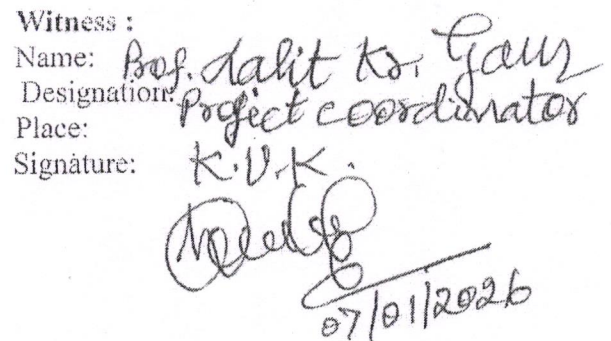 Witness :
Name: Prof. Lalit Kr. Gaur
Designation: Project coordinator
Place: K.V.K.
Signature:
07/01/2026